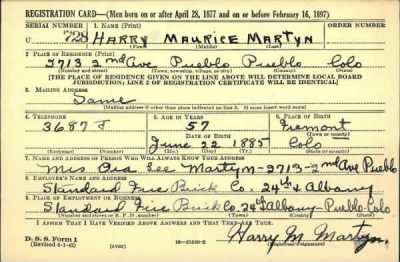 REGISTRATION CARD—(Men born on or after April 28, 1877 and on or before February 16, 1897)
SERIAL NUMBER 1. NAME (Print)
U 728 HARRY MAURICE MARTYN
(First) (Middle) (Last)
2. PLACE OF RESIDENCE (Print)
2713 2nd Ave Pueblo Pueblo Colo
(Number and street) (Town, township, village, or city) (County) (State)
[THE PLACE OF RESIDENCE GIVEN ON THE LINE ABOVE WILL DETERMINE LOCAL BOARD
JURISDICTION; LINE 2 OF REGISTRATION CERTIFICATE WILL BE IDENTICAL]
3. MAILING ADDRESS
Same
[Mailing address if other than place indicated on line 2. If same insert word same]
4. TELEPHONE 5. AGE IN YEARS 6. PLACE OF BIRTH
3687 J 57 Fremont
DATE OF BIRTH (Town or county)
June 22 1885 Colo
(Exchange) (Number) (Mo.) (Day) (Yr.) (State or country)
7. NAME AND ADDRESS OF PERSON WHO WILL ALWAYS KNOW YOUR ADDRESS
Mrs Lee Martyn-2713-2nd Ave Pueblo
8. EMPLOYER'S NAME AND ADDRESS
Standard Fire Brick Co. 24th & Albany
9. PLACE OF EMPLOYMENT OR BUSINESS
Standard Fire Brick Co 24th Albany-Pueblo-Colo
(Number and street or R. F. D. number) (Town) (County) (State)
I AFFIRM THAT I HAVE VERIFIED ABOVE ANSWERS AND THAT THEY ARE TRUE.
Harry M. Martyn
D. S. S. Form 1
(Revised 4-1-42) (over) (Registrant's signature)